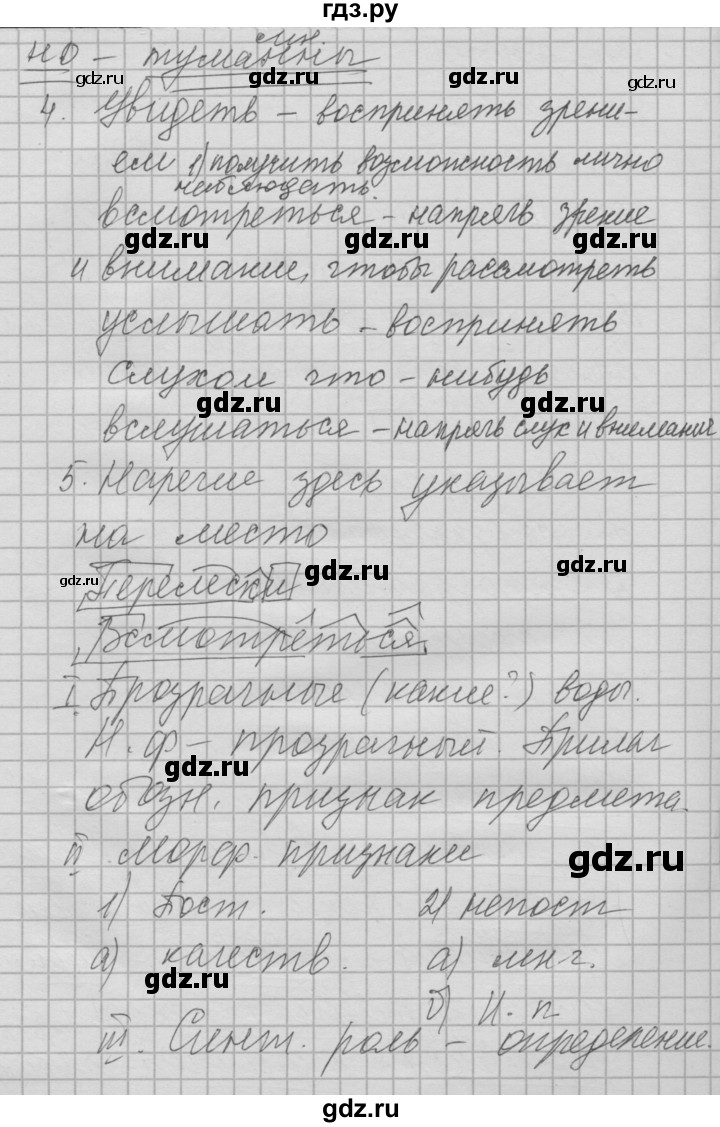 гдз.ру
син
но - туманны
gdz.ru gdz.ru gdz.ru
4. Увидеть - воспринять зрени-
ем 1) получить возможность лично
наблюдать.
всмотреться - напрягв зрение
gdz.ru gdz.ru gdz.ru
и внимание, чтобы рассмотреть
услышать - воспринять
слухом что - нибудь
gdz.ru gdz.ru
вслушаться - напрягв слух и внимание
5. Наречие здесь указывает
на место
gdz.ru gdz.ru gdz.ru
Перелески
Всмотреться
I Прозрачные (какие?) воды.
Н. ф - прозрачный. Прилаг
gdz.ru
обозн. признак предмета.
II. Морф. признаки
gdz.ru
1) Пост. 2) непост
а) качеств. а) мн.ч.
gdz.ru
б) И. п
III. Синт. роль - определение.
gdz.ru